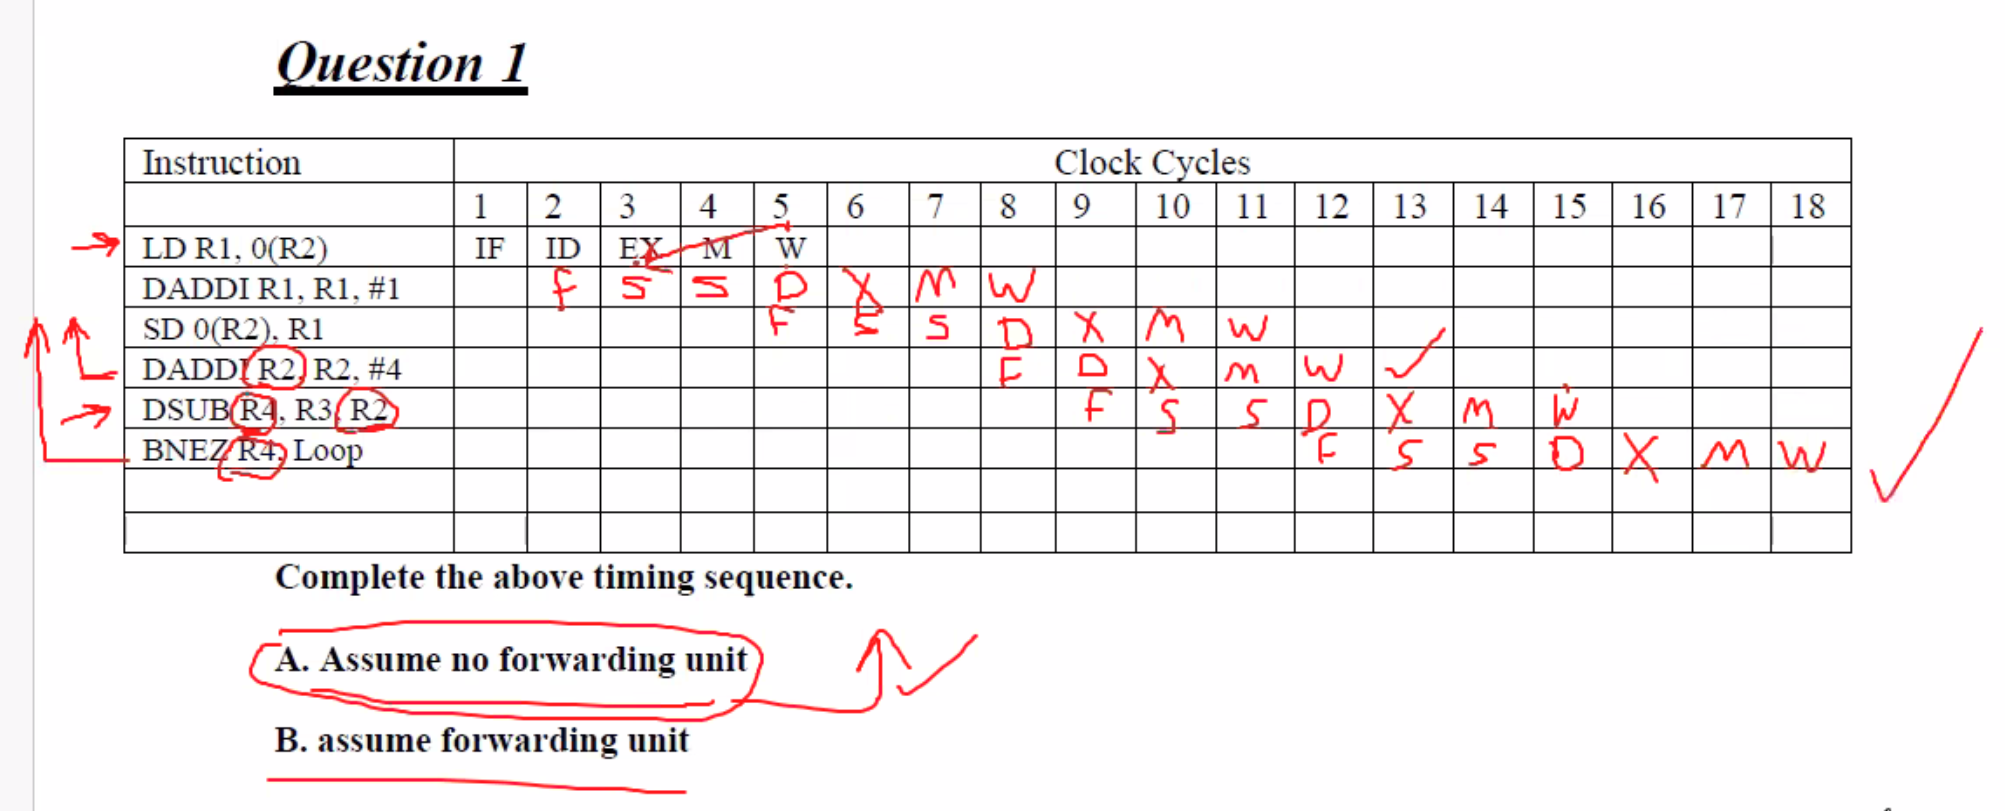 Question 1
Instruction Clock Cycles
1 2 3 4 5 6 7 8 9 10 11 12 13 14 15 16 17 18
LD R1, 0(R2) IF ID EX M W
DADDI R1, R1, #1 F S S D X M W
SD 0(R2), R1 F S S D X M W
DADDI R2, R2, #4 F D X M W
DSUB R4, R3, R2 F S S D X M W
BNEZ R4, Loop F S S D X M W
Complete the above timing sequence.
A. Assume no forwarding unit
B. assume forwarding unit